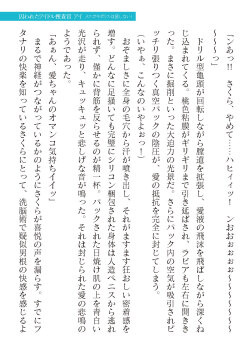 「ンあっ!! さくら、やめて――ハヒィィッ！ ンおおぉぉぉぉ～～～～～～～～～～っ」
ドリル型亀頭が回転しながら膣道を拡張し、愛液の飛沫を飛ばしながら深くねじ込まれてくる。桃色粘膜がギリギリまで引き延ばされ、ラビアも左右に開ききった、まさに掘削といった迫力の光景だ。さらにパック内の空気が吸引されピッチリ張りつく真空パックの陰圧が、愛の抵抗を完全に封じてしまう。
「いやぁ、こんなのいやぉぉっ！」
おぞましさに全身の毛穴から汗が噴き出し、それがますます狂おしい密着感を増す。どんなに足掻いても完璧にシリコン梱包された身体は人造ペニスから逃れられず、僅かに背筋を反らせるのが精一杯。パックされた日焼け肌の上を青白い光沢が走り、キュッキュッと悲しげな音が鳴った。それは封じられた愛の悲鳴のようであった。
「ああん、愛ちゃんのオマンコ気持ちイイッ」
まるで神経がつながっているかのようにさくらが喜悦の声を漏らす。すでにフタナリの快楽を知っているさくらにとって、洗脳術で疑似男根の快感を感じるよ